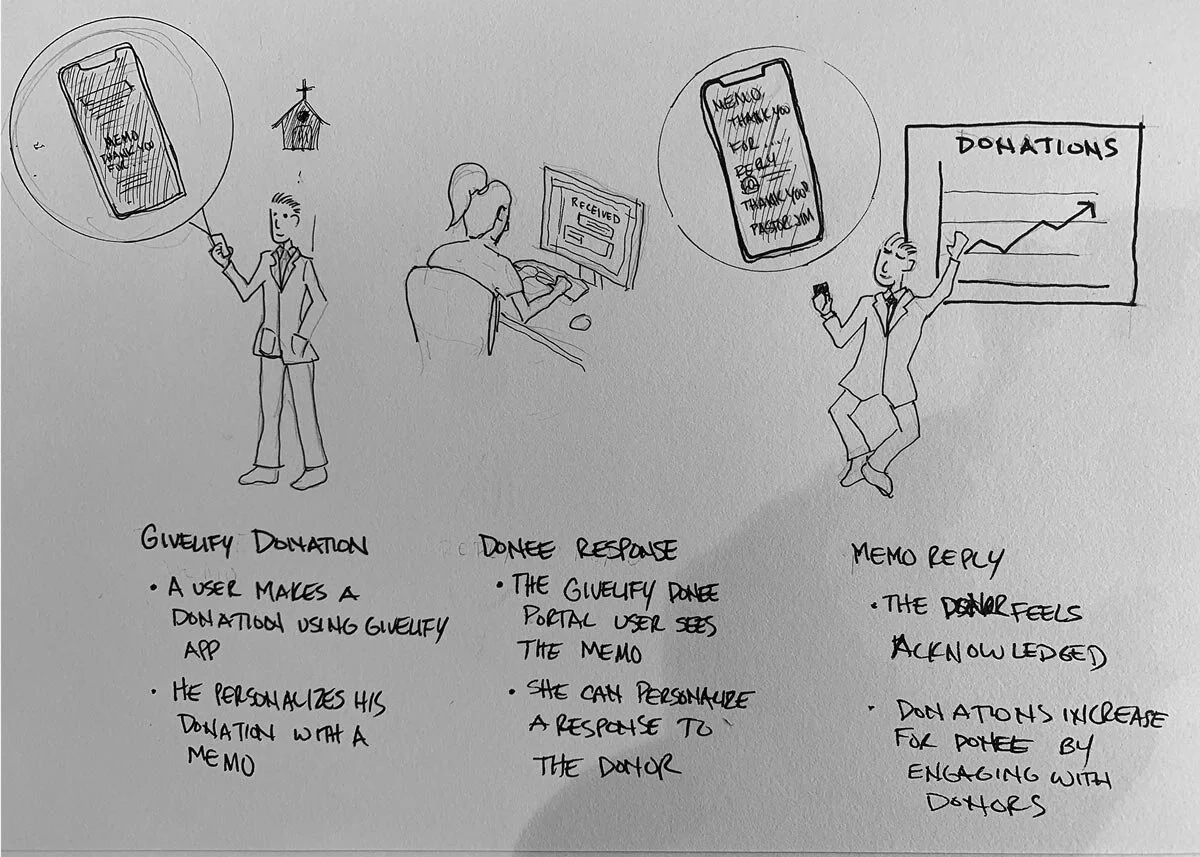 MEMO
THANK YOU
FOR
RECEIVED
MEMO
THANK YOU
FOR ...
REPLY
THANK YOU!
PASTOR JIM
DONATIONS
GIVELIFY DONATION
• A USER MAKES A
DONATION USING GIVELIFY
APP
• HE PERSONALIZES HIS
DONATION WITH A
MEMO
DONEE RESPONSE
• THE GIVELIFY DONEE
PORTAL USER SEES
THE MEMO
• SHE CAN PERSONALIZE
A RESPONSE TO
THE DONOR
MEMO REPLY
• THE DONOR FEELS
ACKNOWLEDGED
• DONATIONS INCREASE
FOR DONEE BY
ENGAGING WITH
DONORS